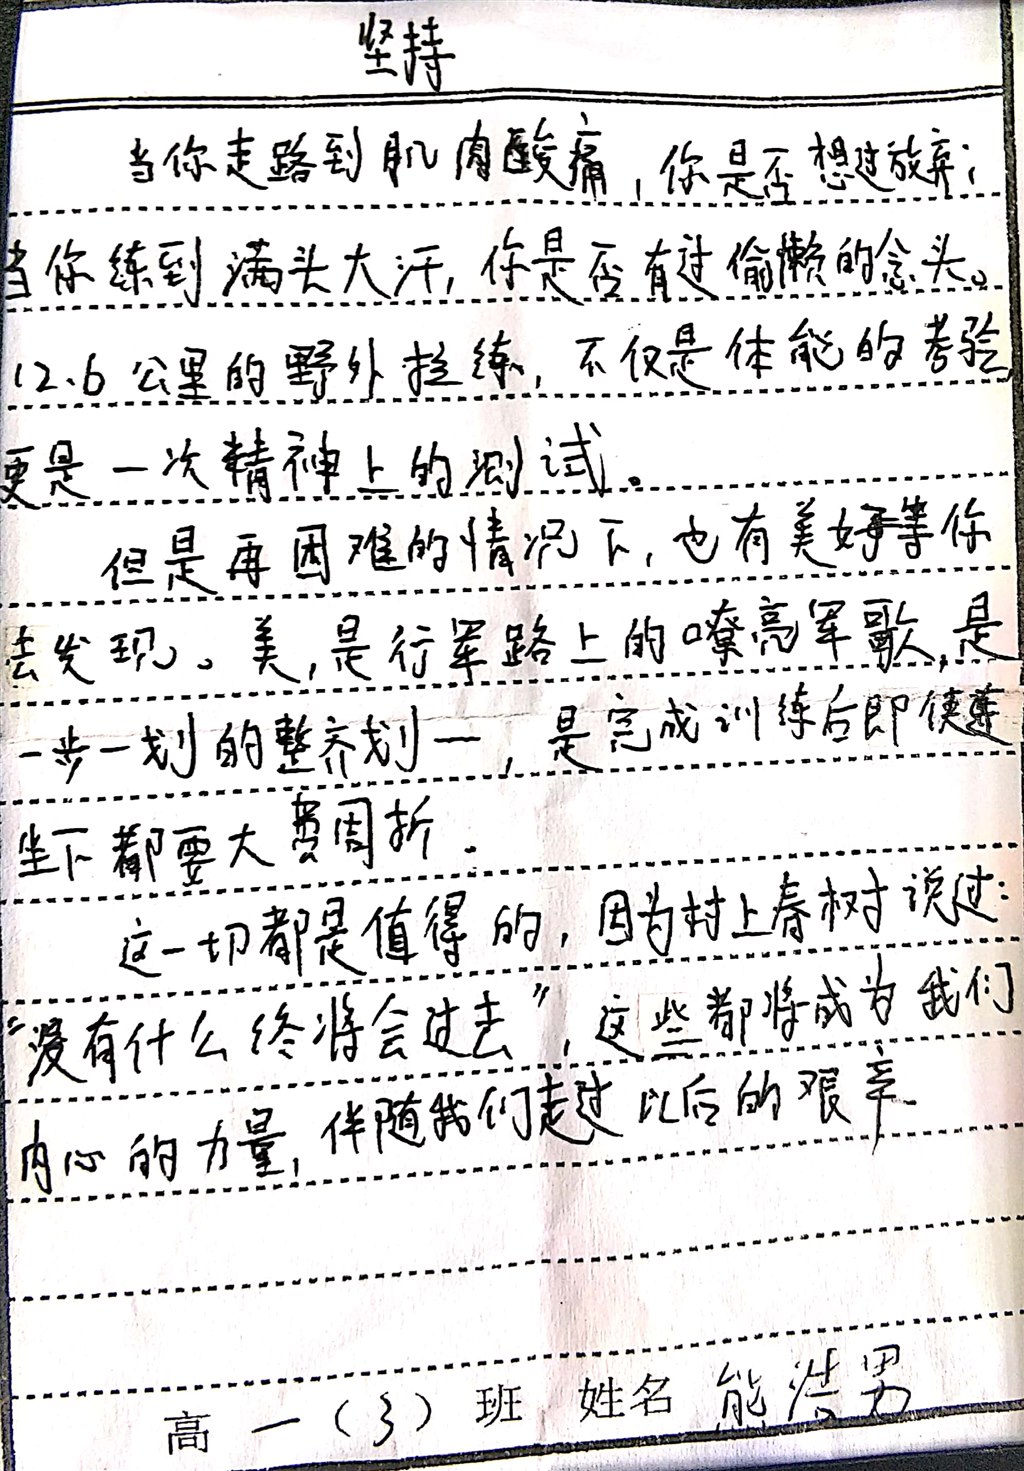 坚持
当你走路到肌肉酸痛，你是否想过放弃；
当你练到满头大汗，你是否有过偷懒的念头。
12.6公里的野外拉练，不仅是体能的考验，
更是一次精神上的测试。
但是再困难的情况下，也有美好等你
去发现。美，是行军路上的嘹亮军歌，是
一步一划的整齐划一，是完成训练后即使连
坐下都要大费周折。
这一切都是值得的，因为村上春树说过：
“没有什么终将会过去”，这些都将成为我们
内心的力量，伴随我们走过以后的艰辛。
高一（3）班 姓名 熊浩男